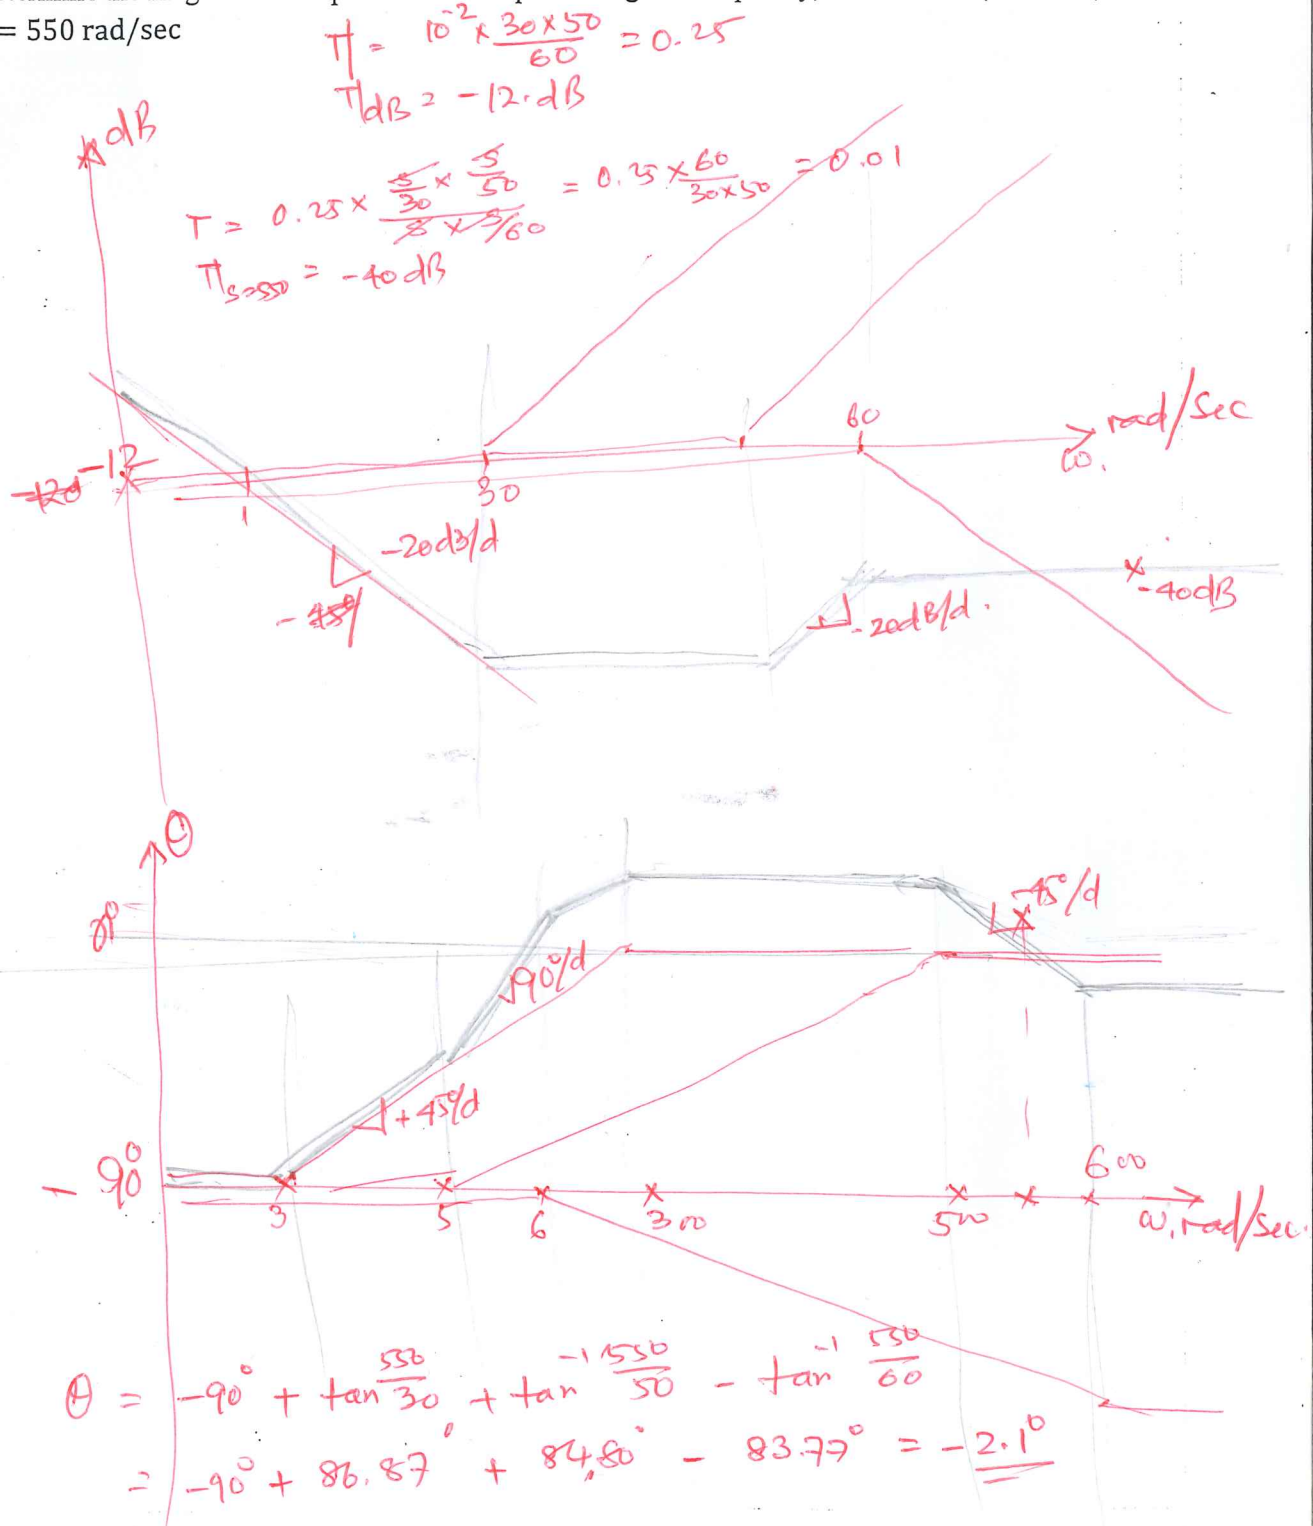 = 550 rad/sec
T = 10^-2 × 30×50 / 60 = 0.25
T|dB = -12.dB
dB
T = 0.25 × 5/30 × 5/50 / 5 × 5/60 = 0.25 × 60 / 30×50 = 0.01
T|s=550 = -40dB
60
rad/sec
ω.
-120 -12
1
30
-20dB/d
-45°/
-40dB
-20dB/d.
θ
-45°/d
0°
90°/d
+45°/d
-90°
600
3
5
6
300
500
ω, rad/sec.
θ = -90° + tan 550/30 + tan^-1 550/50 - tan^-1 550/60
= -90° + 86.87° + 84.80° - 83.77° = -2.1°